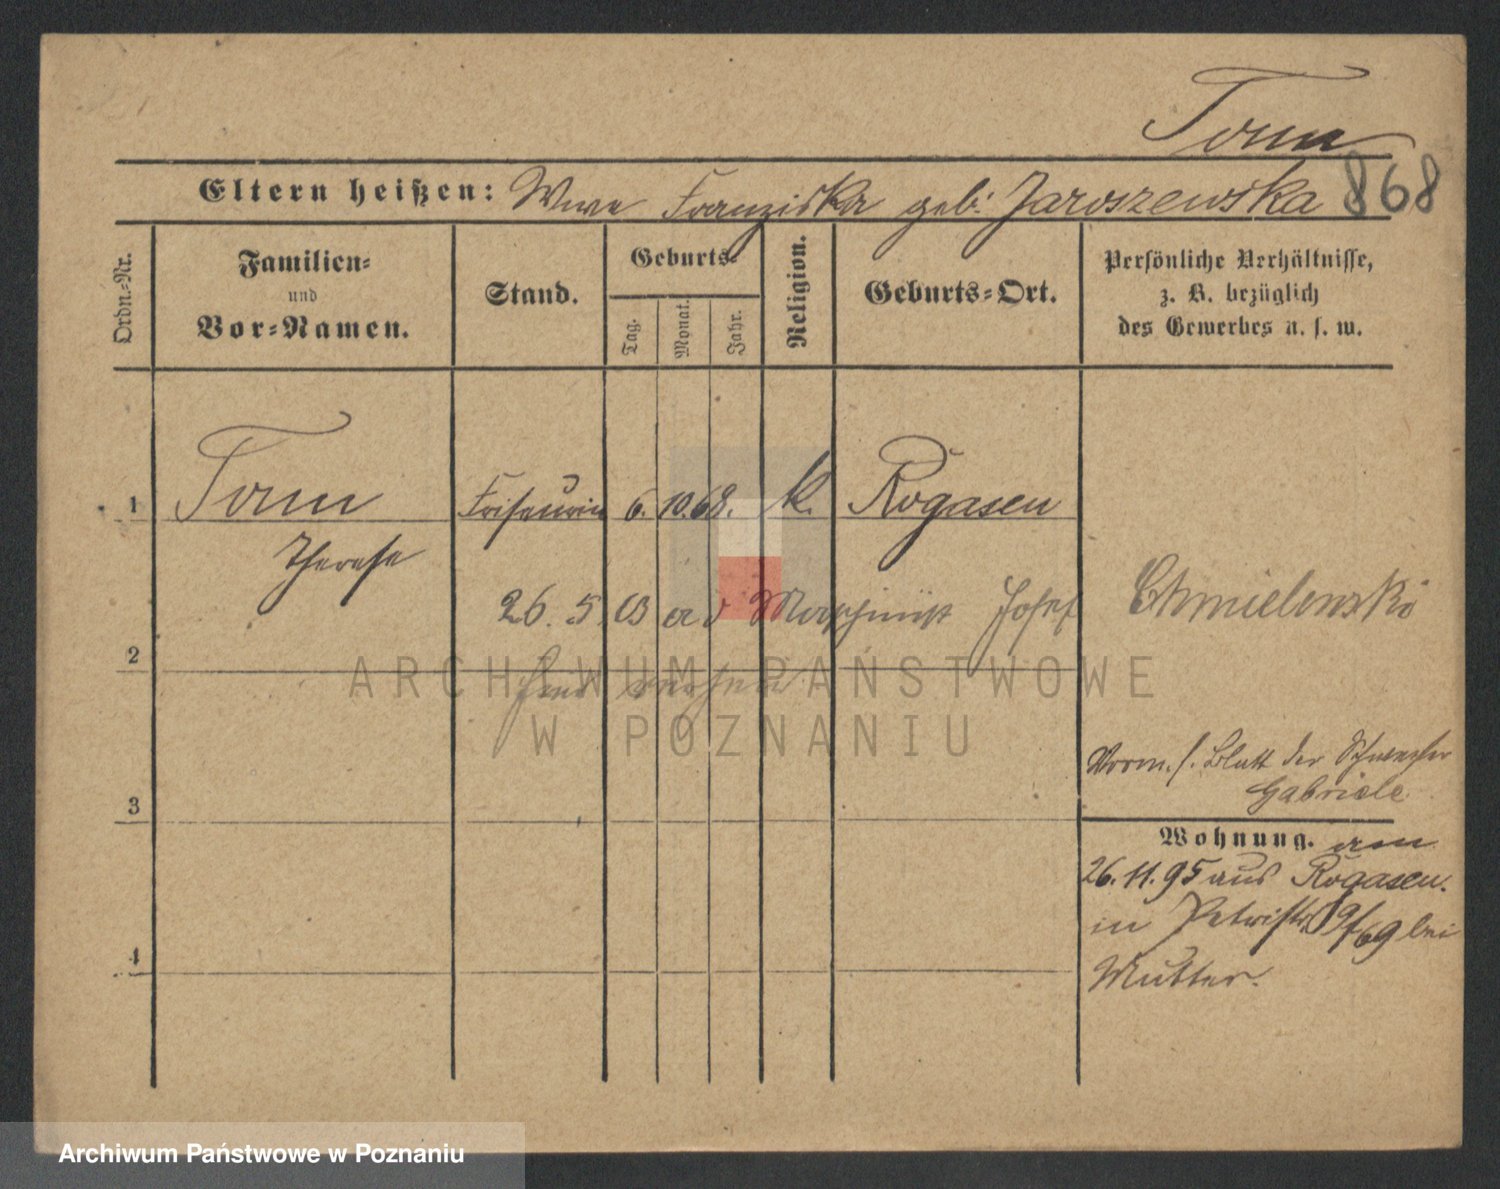 Tomm
Eltern heißen: Wwe Franziska geb: Jaroszewska 868
Ordn.-Nr.
Familien-
und
Vor-Namen.
Stand.
Geburts-
Tag.
Monat.
Jahr.
Religion.
Geburts-Ort.
Persönliche Verhältnisse,
z. B. bezüglich
des Gewerbes u. s. w.
1 Tomm Friseurin 6. 10. 68. k. Rogasen
Therese
26. 5. 03 a d Maschinist Josef Chmielewski
2
Vorm. s. Blatt der Schwester
Gabriele
3
Wohnung. am
26. 11. 95 aus Rogasen.
in Petristr 9/69 bei
4
Mutter.
ARCHIWUM PAŃSTWOWE
W POZNANIU
Archiwum Państwowe w Poznaniu